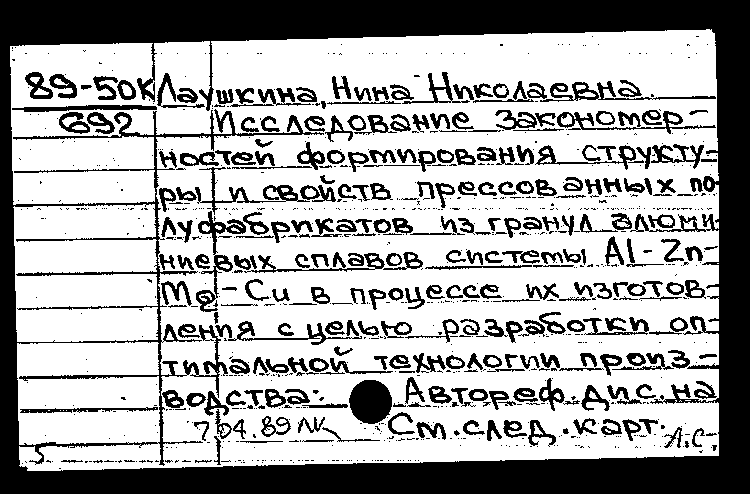 89-50К Лаушкина, Нина Николаевна.
692 Исследование закономер-
ностей формирования структу-
ры и свойств прессованных по-
луфабрикатов из гранул алюми-
ниевых сплавов системы Al-Zn-
Mg-Cu в процессе их изготов-
ления с целью разработки оп-
тимальной технологии произ-
водства: Автореф. дис. на
7.04.89 ЛК См. след. карт. Л.С.
5